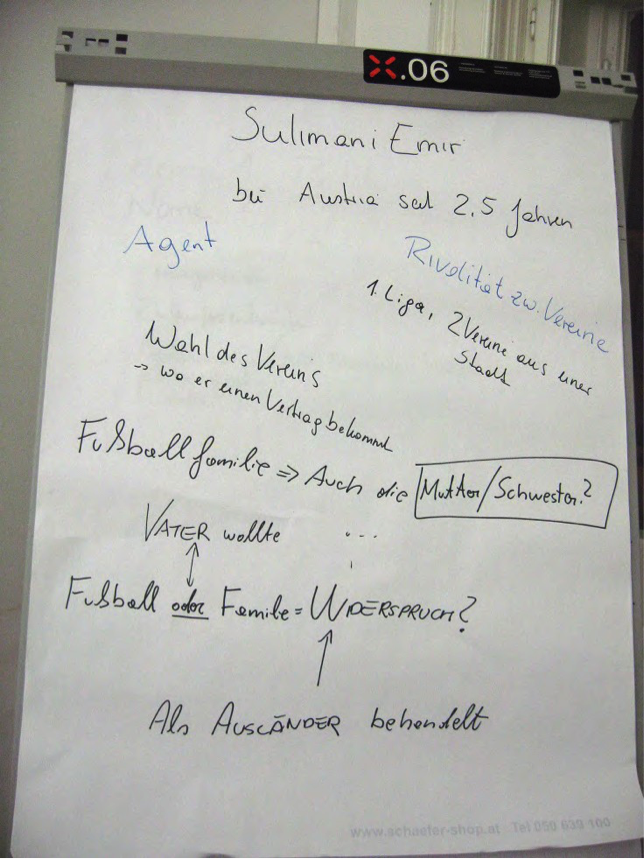 X.06
Sulimani Emir
bei Austria seit 2,5 Jahren
Agent
Rivalität zw. Vereine
1. Liga, 2 Vereine aus einer
Stadt
Wahl des Vereins
→ wo er einen Vertrag bekommt
Fußballfamilie ⇒ Auch die Mutter/Schwester?
VATER wollte ...
Fußball oder Familie = WIDERSPRUCH?
Als AUSLÄNDER behandelt
www.schaefer-shop.at Tel 059 639 100